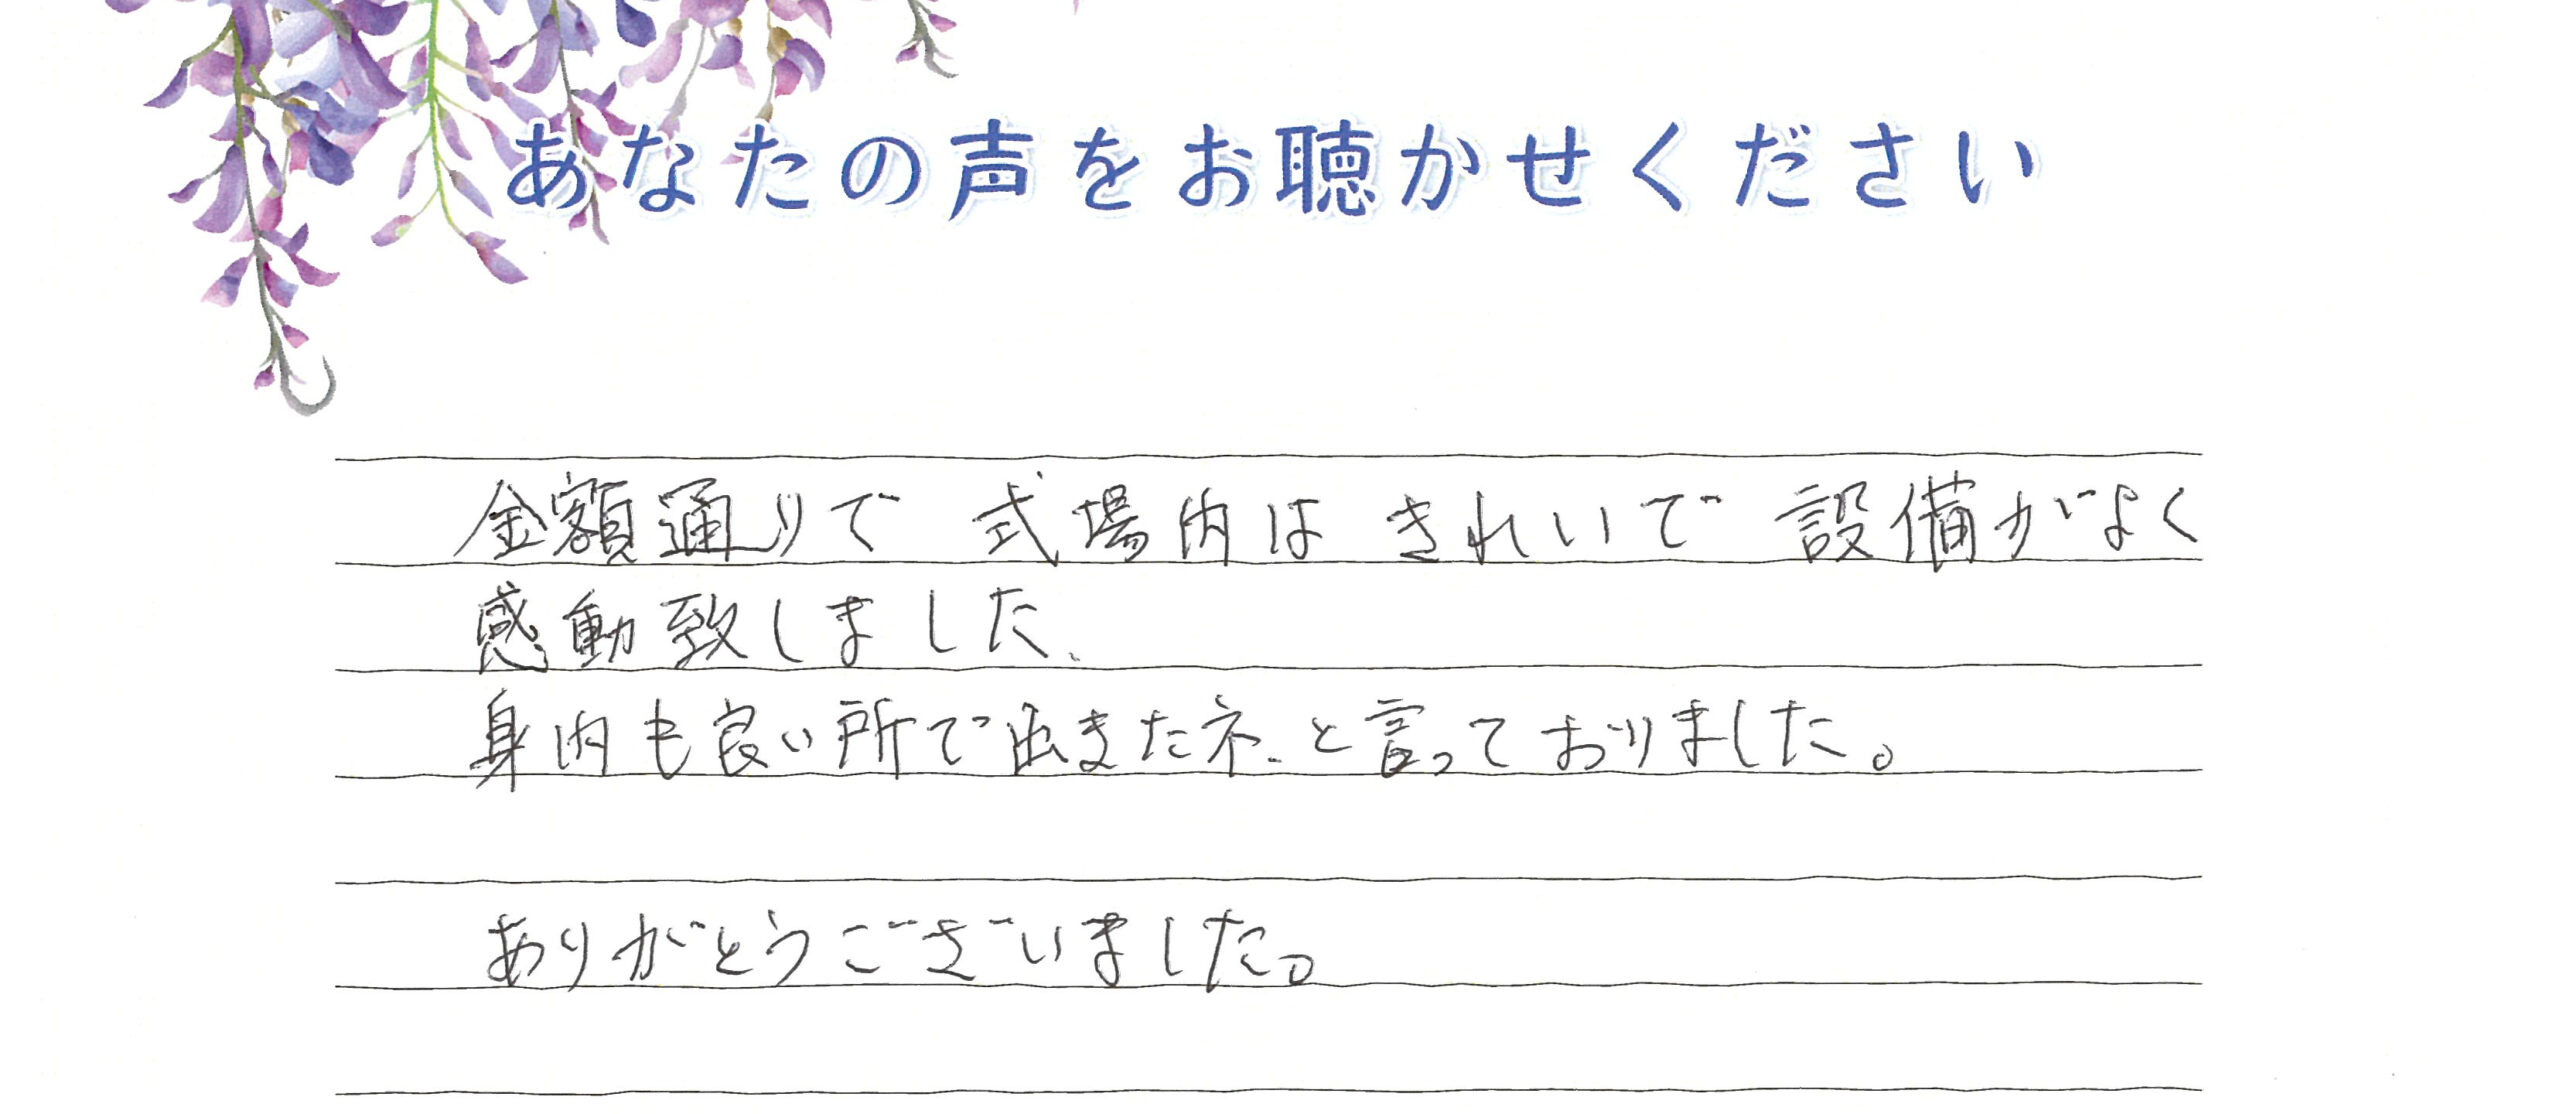 あなたの声をお聴かせください
金額通りで 式場内は きれいで 設備がよく
感動致しました、
身内も良い所で出きたネ、と言っておりました。
ありがとうございました。